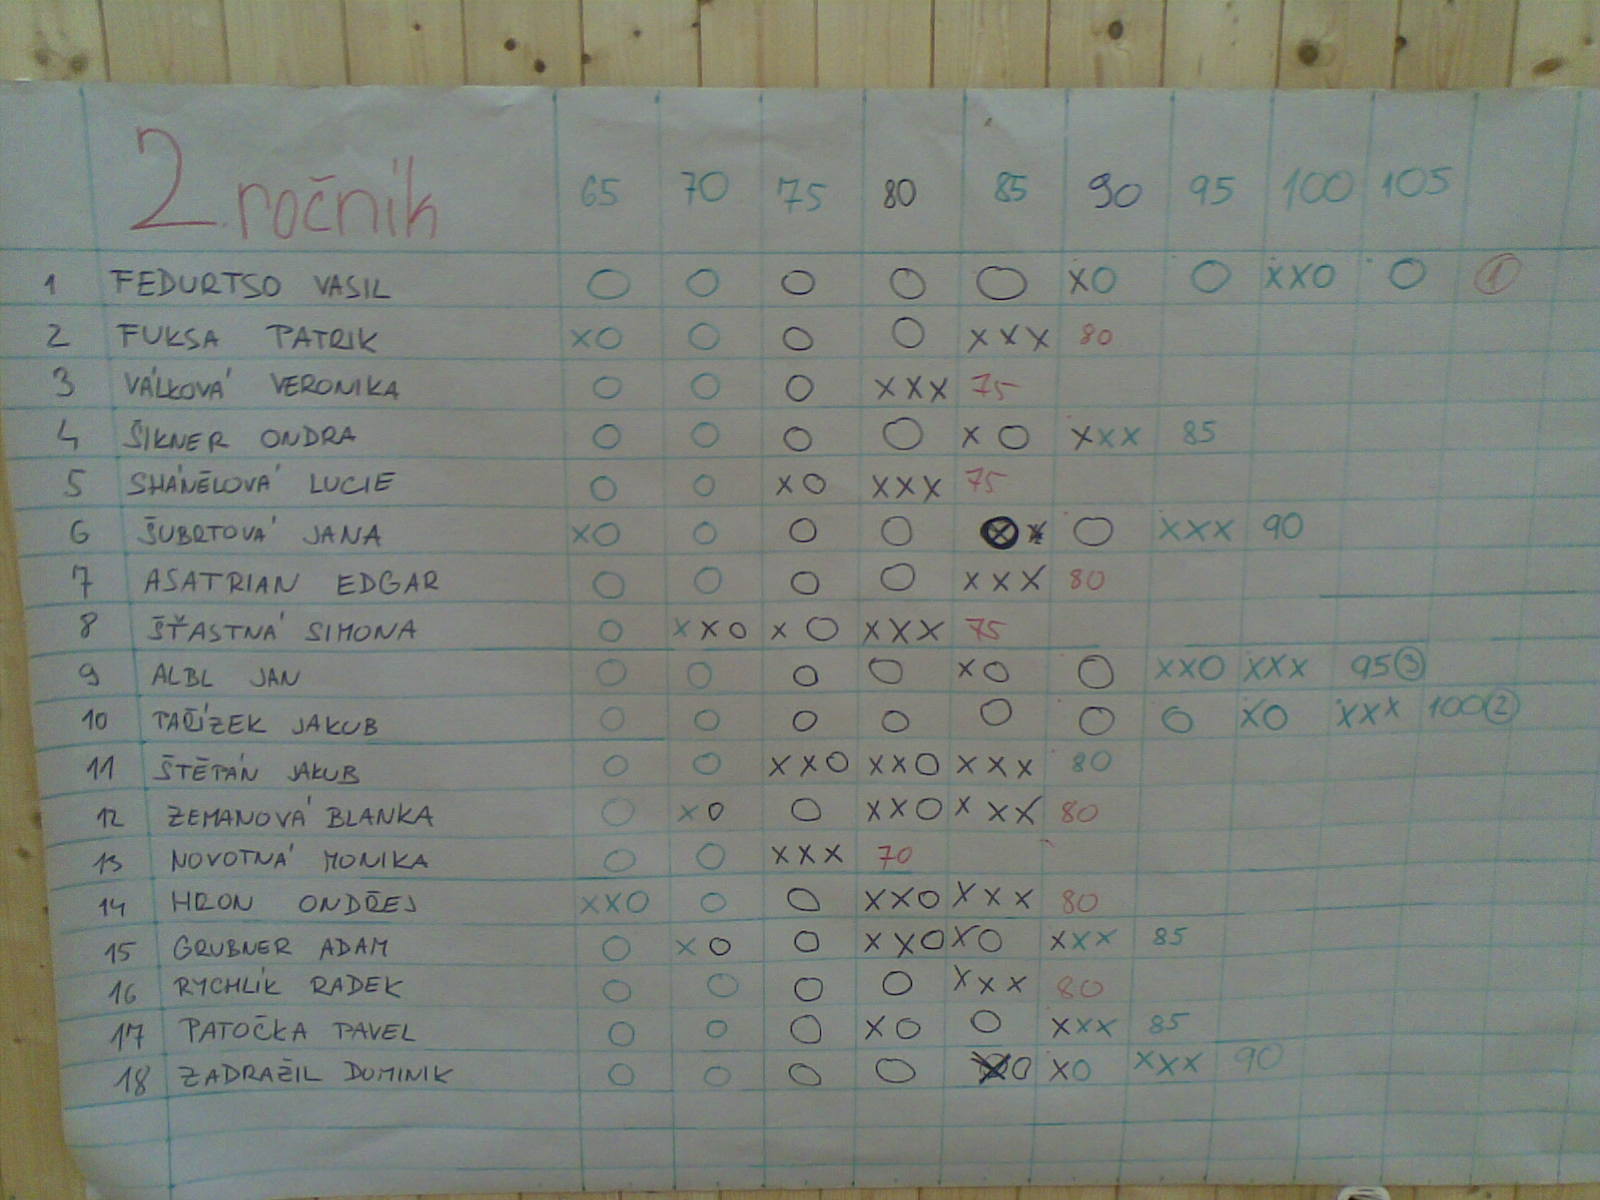 2. ročník 65 70 75 80 85 90 95 100 105
1 FEDURTSO VASIL O O O O O XO O XXO O 1
2 FUKSA PATRIK XO O O O XXX 80
3 VÁLKOVÁ VERONIKA O O O XXX 75
4 ŠIKNER ONDRA O O O O XO XXX 85
5 SHÁNĚLOVÁ LUCIE O O XO XXX 75
6 ŠUBRTOVÁ JANA XO O O O O XXX 90
7 ASATRIAN EDGAR O O O O XXX 80
8 ŠŤASTNÁ SIMONA O XXO XO XXX 75
9 ALBL JAN O O O O XO O XXO XXX 95 3
10 JAKUB O O O O O O O XO XXX 100 2
11 ŠTĚPÁN JAKUB O O XXO XXO XXX 80
12 ZEMANOVÁ BLANKA O XO O XXO XXX 80
13 NOVOTNÁ MONIKA O O XXX 70
14 HRON ONDŘEJ XXO O O XXO XXX 80
15 GRUBNER ADAM O XO O XXO XO XXX 85
16 RYCHLÍK RADEK O O O O XXX 80
17 PATOČKA PAVEL O O O XO O XXX 85
18 ZADRAŽIL DOMINIK O O O O O XO XXX 90